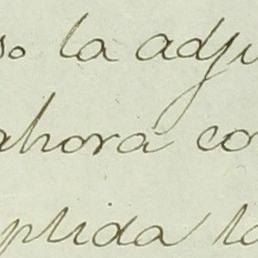 so la adju
ahora co
plida la